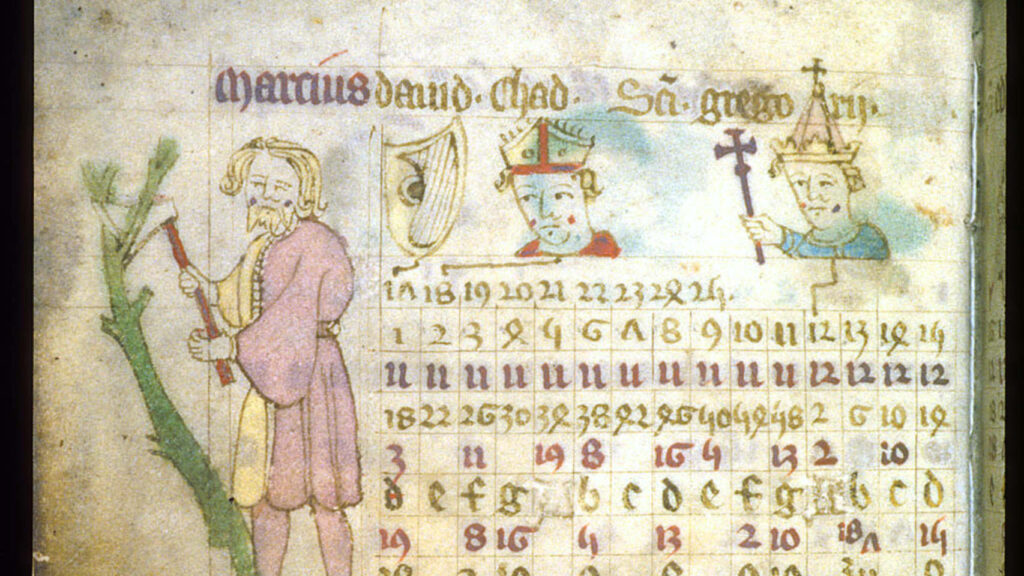 Marcius dauid · Chad · Sc̃i · grego rij ·
17 18 19 20 21 22 23 24 25 .
1 2 3 4 5 6 7 8 9 10 11 12 13 14 15
11 11 11 11 11 11 11 11 11 11 11 12 12 12 12
18 22 26 30 34 38 42 46 50 54 58 2 6 10 14
3 11 19 8 16 5 13 2 10
d e f g b c d e f g b c d
19 8 16 5 13 2 10 18 7 15